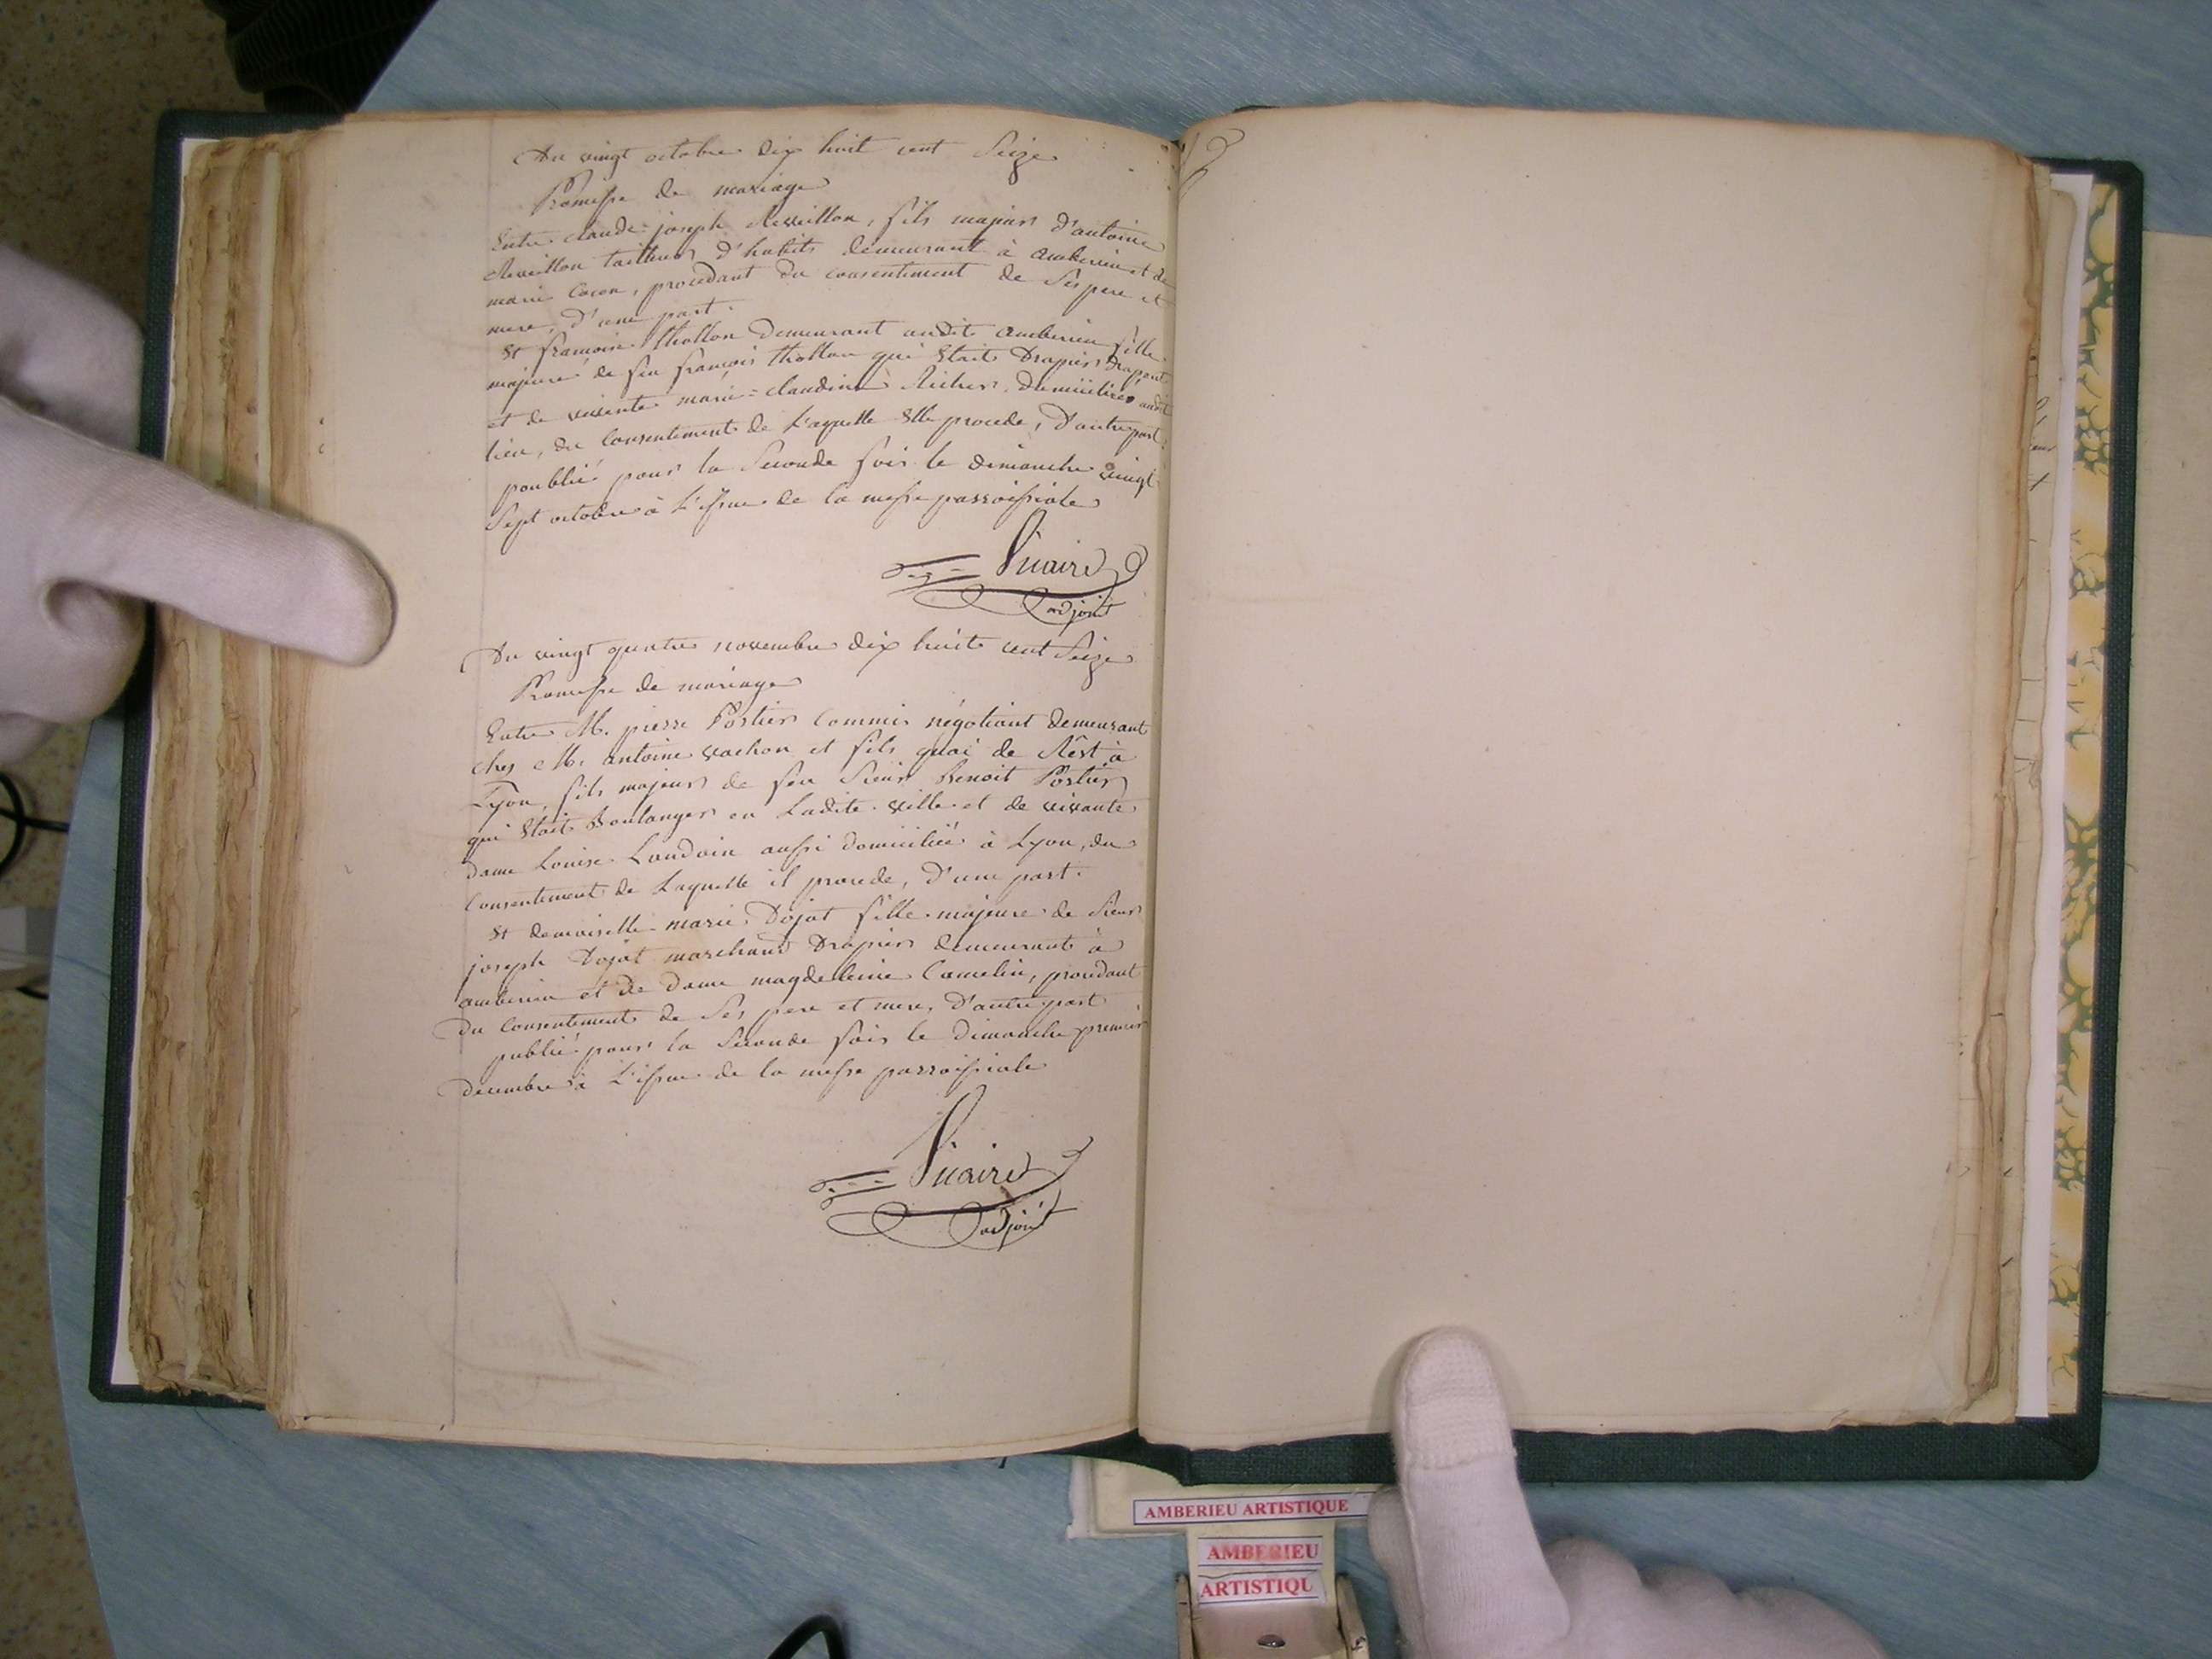 Du vingt octobre dix huit cent Seize
Promesse de mariage
Entre claude joseph Reveillon, fils majeur d'antoine
Reveillon tailleur d'habits demeurant à amberieu et de
marie Cocon, procedant du consentement de Ses pere et
mere, d'une part.
Et francoise thollon demeurant audit amberieu fille
majeure de feu françois thollon qui Etait Drapier drapant
et de vivante marie=claudine Richer domiciliée audit
lieu, du Consentement de Laquelle Elle procede, D'autre part.
poublié pour la Seconde fois le dimanche vingt
Sept octobre à L'issue de la messe parroissiale
Vicaire
adjoint
Du vingt quatre novembre dix huit cent Seize
Promesse de mariage
Entre M. pierre Postier Commis négotiant demeurant
chez M. antoine vachon et fils quai de Rêst à
Lyon, fils majeur de feu Sieur Benoit Postier
qui Etait Boulanger en Ladite ville et de vivante
dame Louise Landoin aussi domiciliée à Lyon, du
Consentement de Laquelle il procede, D'une part.
Et demoiselle marie Dojat fille majeure de Sieur
joseph Dojat marchand Drapier demeurant à
amberieu et de dame magdeleine Camelin, procedant
du Consentement de Ses pere et mere, D'autre part
publié pour la Seconde fois le Dimanche premier
decembre à L'issue de la messe parroissiale
Vicaire
adjoint
AMBERIEU ARTISTIQUE
AMBERIEU
ARTISTIQU